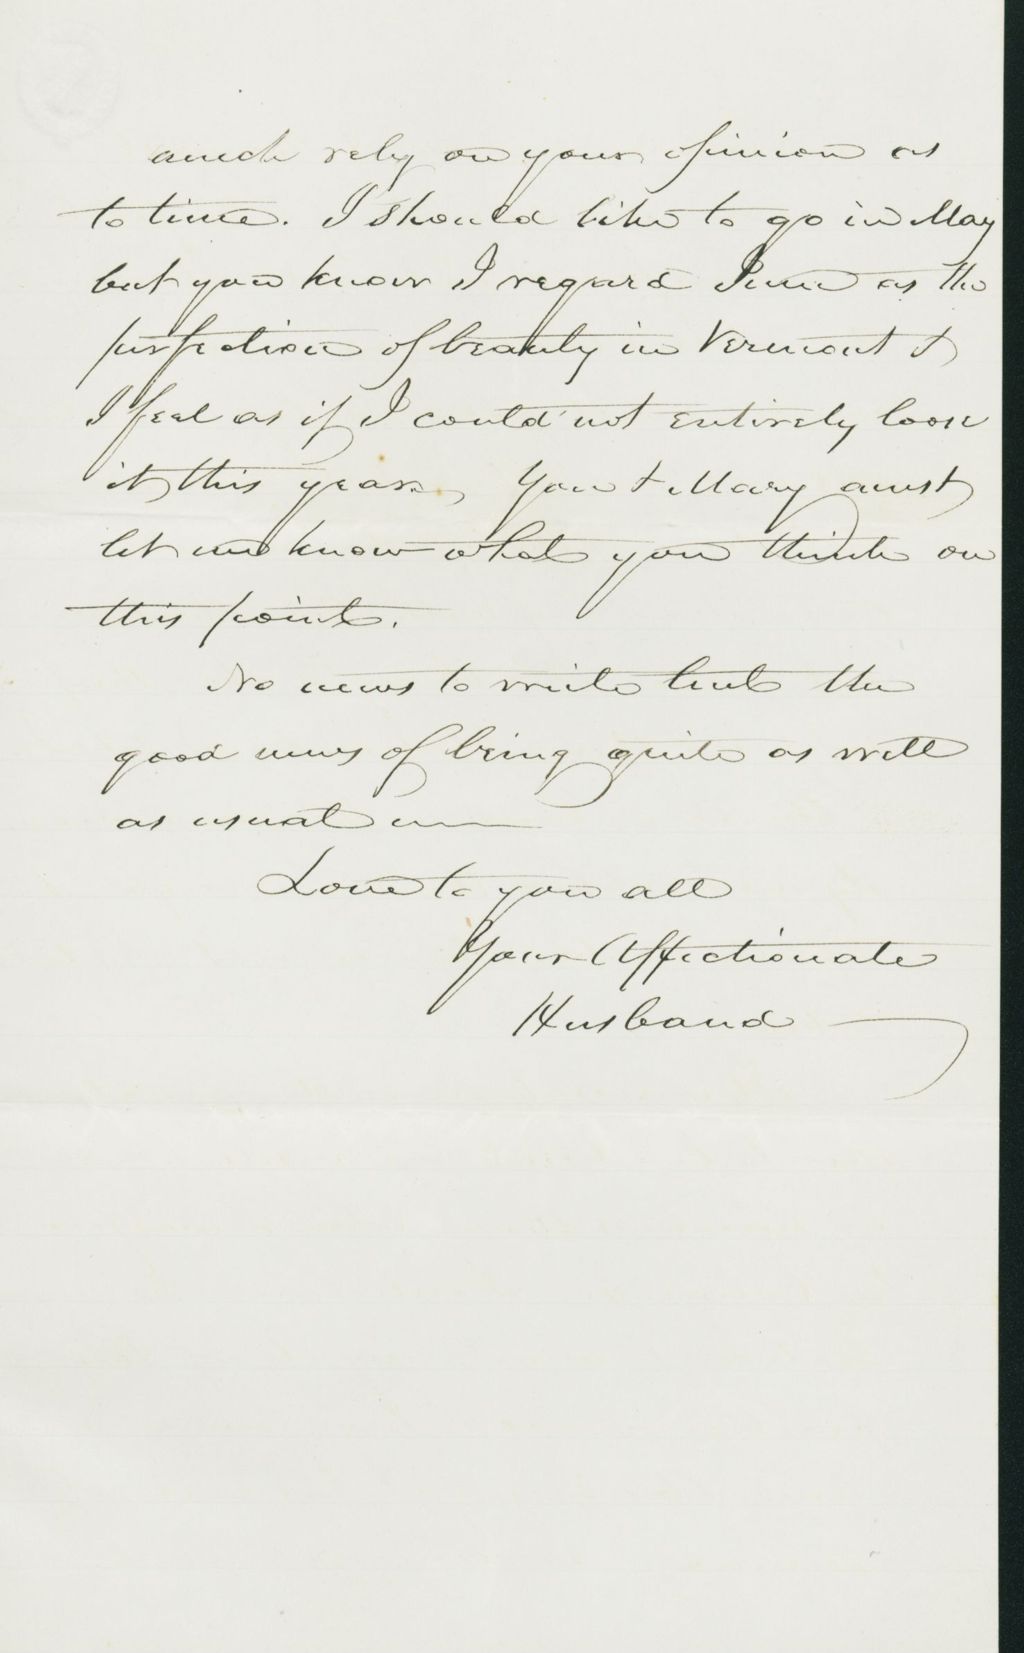 much rely on your opinion as
to time. I should like to go in May
but you know I regard June as the
perfection of beauty in Vermont &
I feel as if I could not entirely loose
it this year. You & Mary must
let me know what you think on
this point.
No news to write but the
good news of being quite as well
as usual
Love to you all
Your Affectionate
Husband